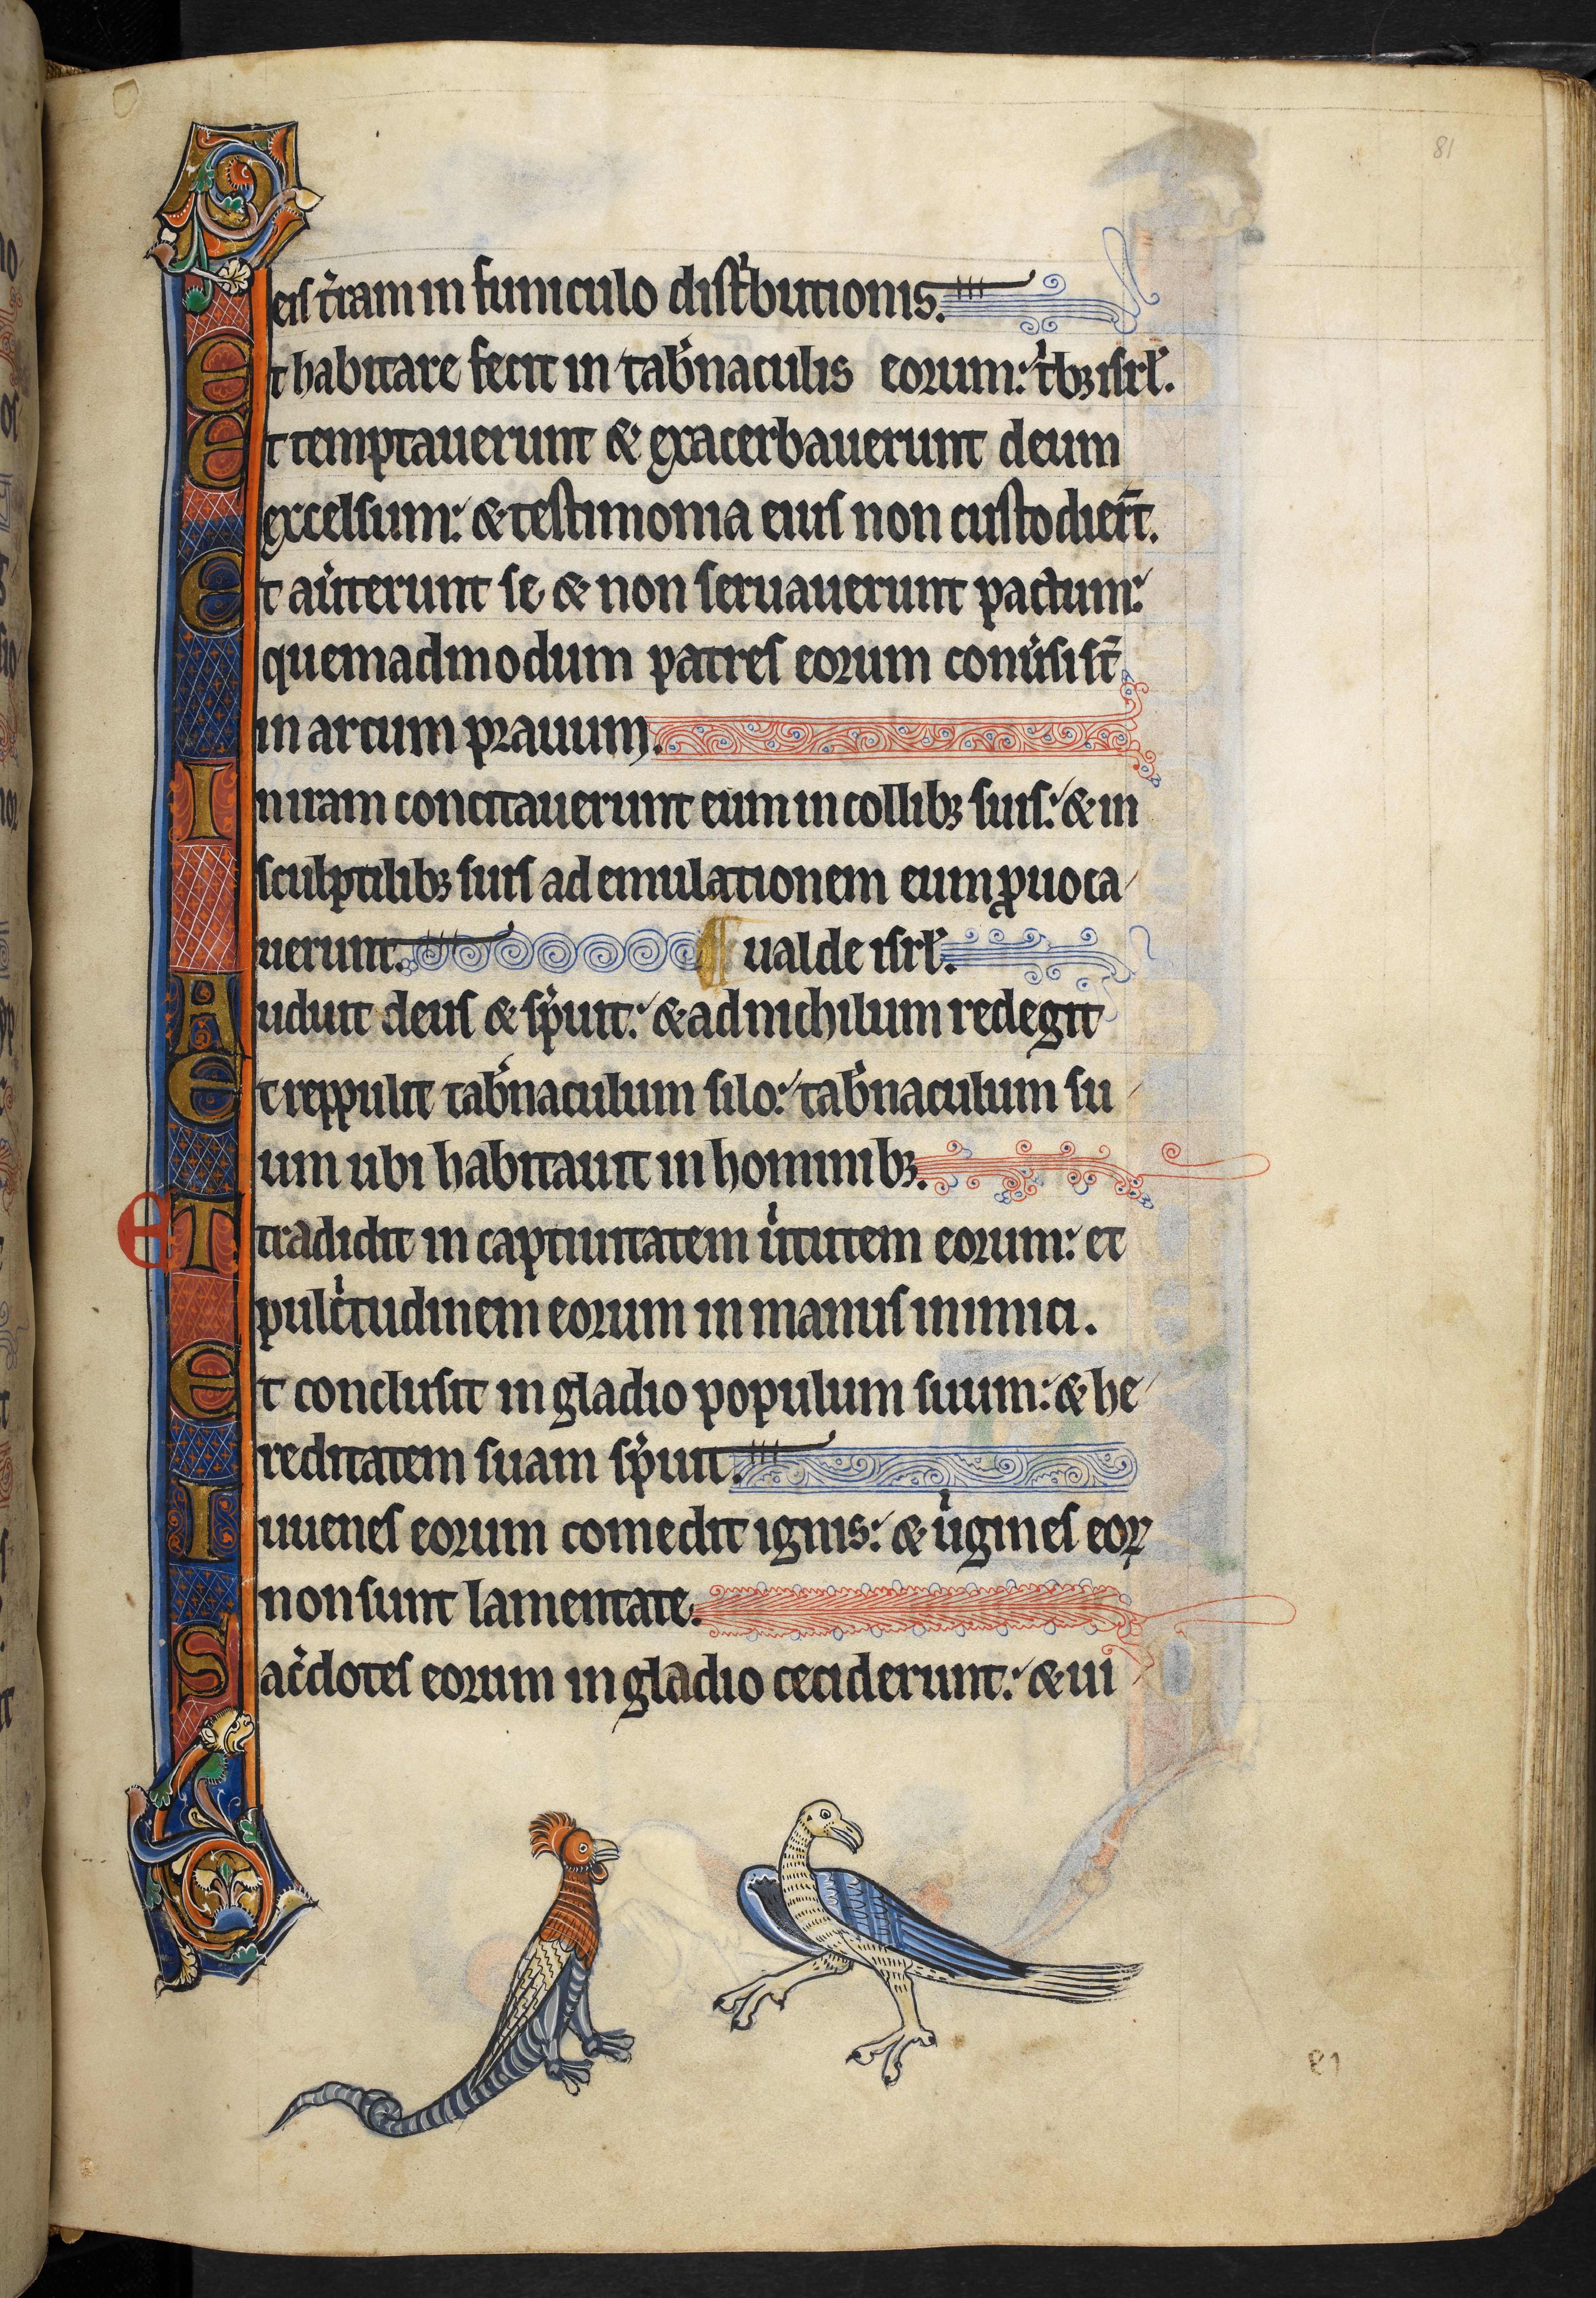 81
eis t̾ram in funiculo dist̾butionis.
Et habitare fecit in tab̾naculis eorum: t̾bꝫ isrl̾.
Et temptauerunt & exacerbauerunt deum
excelsum: & testimonia eius non custodier̄t.
Et au̾terunt se & non seruauerunt pactum:
quemadmodum patres eorum conu̾si st̄
in arcum prauum.
In iram concitauerunt eum in collibꝫ suis: & in
sculptilibꝫ suis ad emulationem eum ꝓuoca
uerunt. ¶ ualde isrl̾.
Audiuit deus & sp̾uit: & ad nichilum redegit
Et reppulit tab̾naculum silo: tab̾naculum su
um ubi habitauit in hominibꝫ.
Et tradidit in captiuitatem u̾tutem eorum: et
pulc̾tudinem eorum in manus inimici.
Et conclusit in gladio populum suum: & he
reditatem suam sp̾uit.
Iuuenes eorum comedit ignis: & u̾gines eoꝝ
non sunt lamentate.
Sac̾dotes eorum in gladio ceciderunt: & ui
81